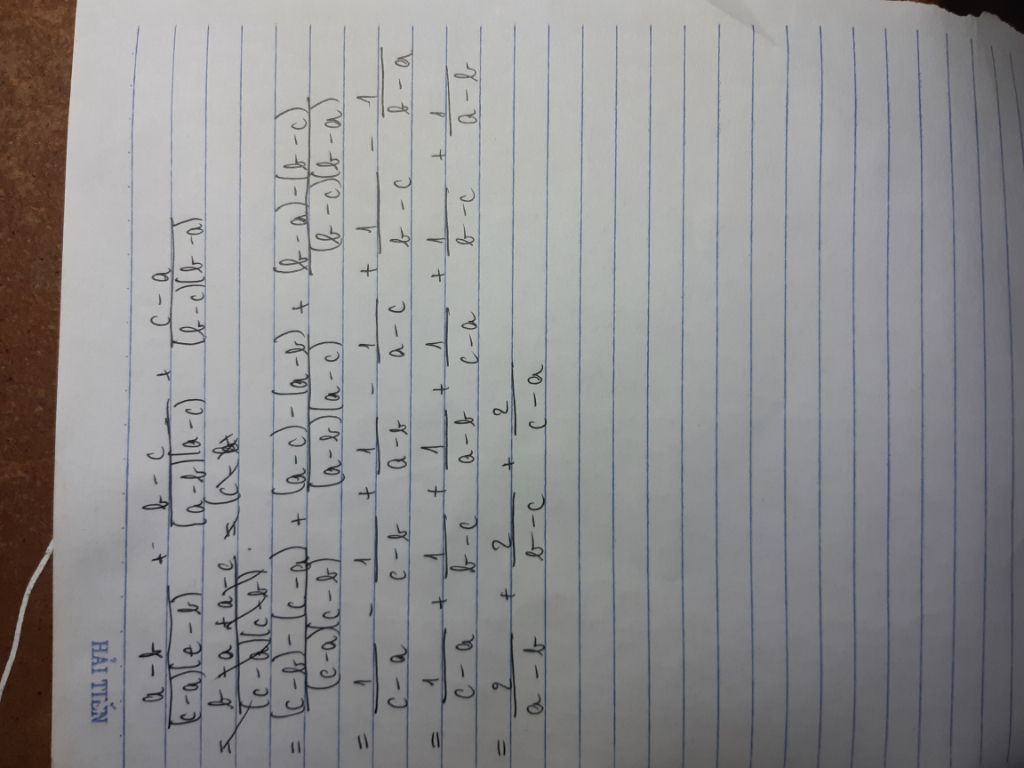 HẢI TIẾN
\frac{a-b}{(c-a)(c-b)} + \frac{b-c}{(a-b)(a-c)} + \frac{c-a}{(b-c)(b-a)}
= \frac{(c-b)-(c-a)}{(c-a)(c-b)} + \frac{(a-c)-(a-b)}{(a-b)(a-c)} + \frac{(b-a)-(b-c)}{(b-c)(b-a)}
= \frac{1}{c-a} - \frac{1}{c-b} + \frac{1}{a-b} - \frac{1}{a-c} + \frac{1}{b-c} - \frac{1}{b-a}
= \frac{1}{c-a} + \frac{1}{b-c} + \frac{1}{a-b} + \frac{1}{c-a} + \frac{1}{b-c} + \frac{1}{a-b}
= \frac{2}{a-b} + \frac{2}{b-c} + \frac{2}{c-a}